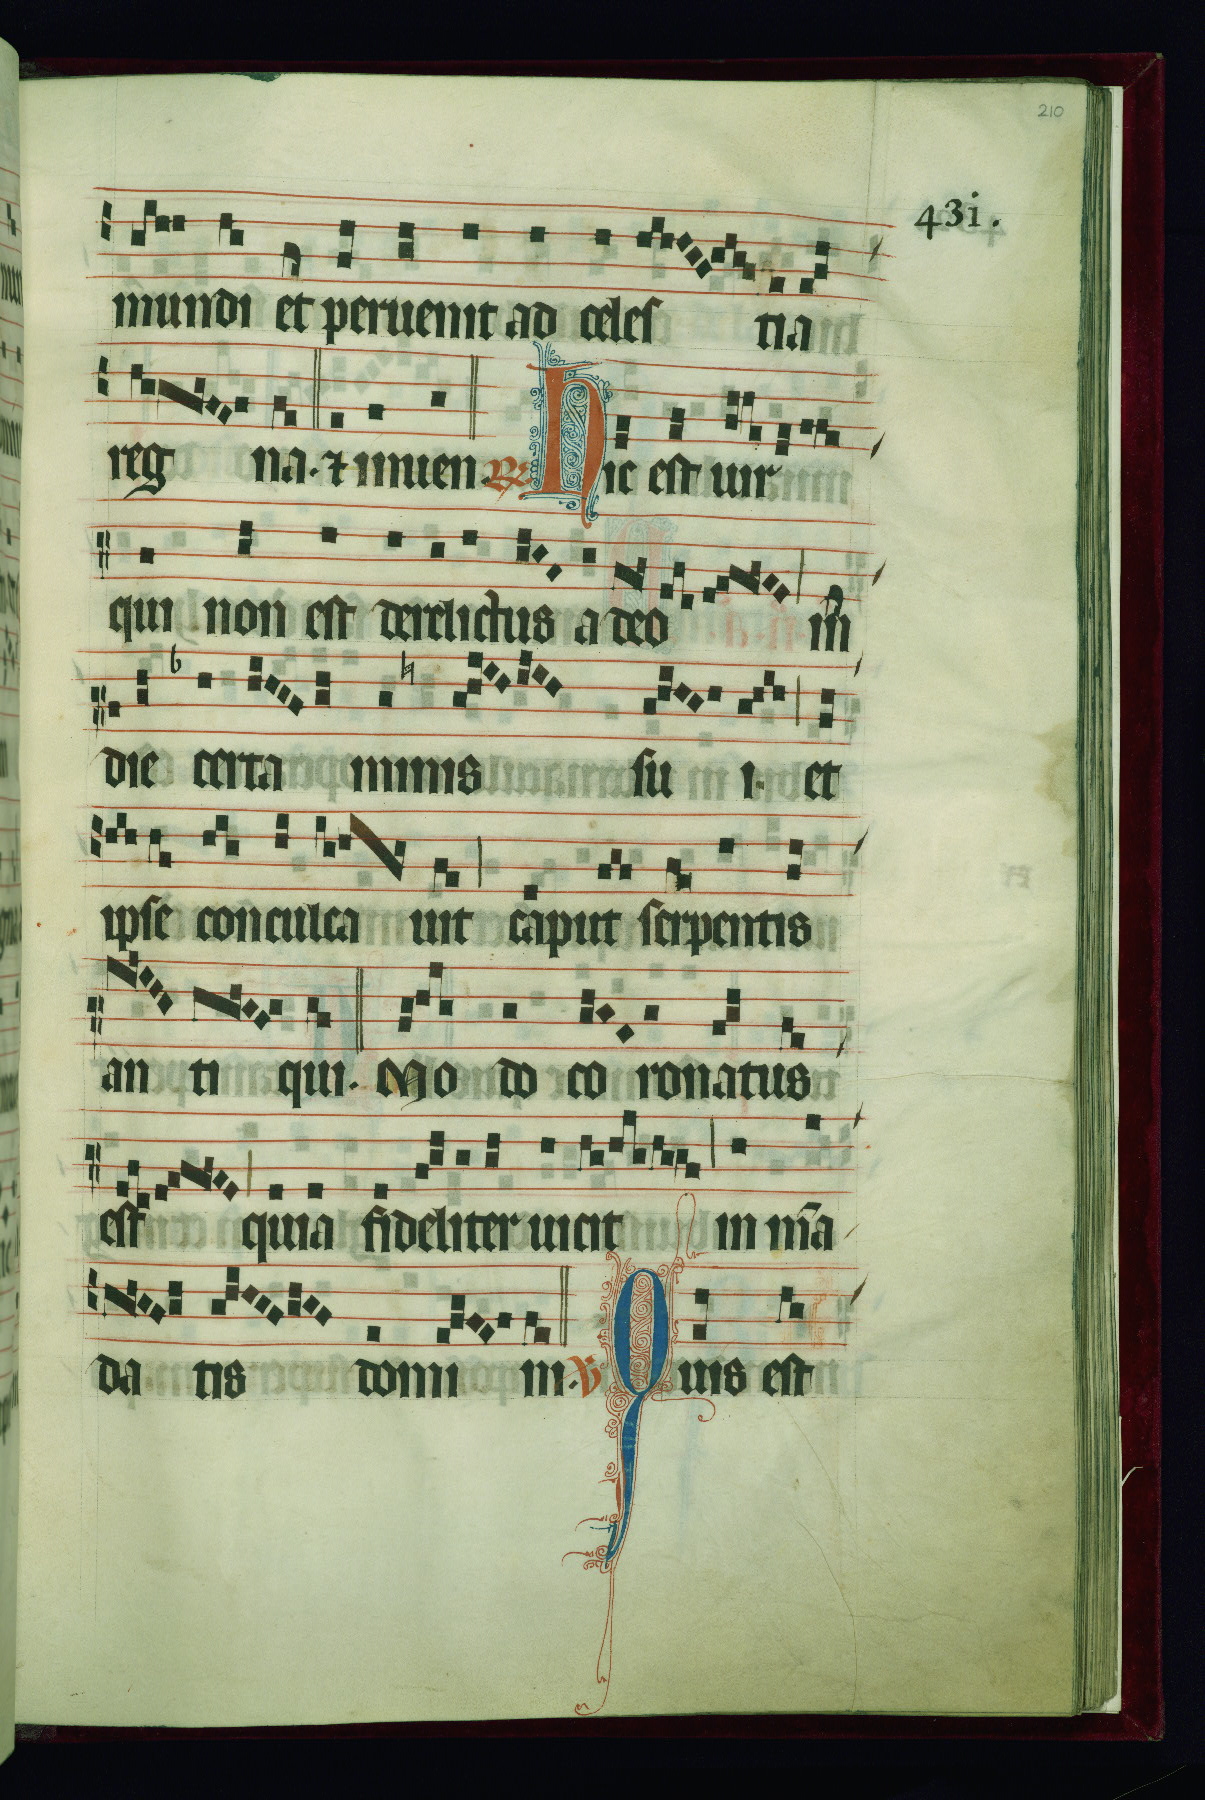 210
431.
mundi et peruenit ad celes tia
reg na. ⁊ inuen ℟ Hic est uir
qui non est derelictus a deo in
die certa minis su i. et
ipse conculca uit caput serpentis
an ti qui. Mo do co ronatus
est quia fideliter uicit in m̄a
da tis domi ni. ℣ Quis est